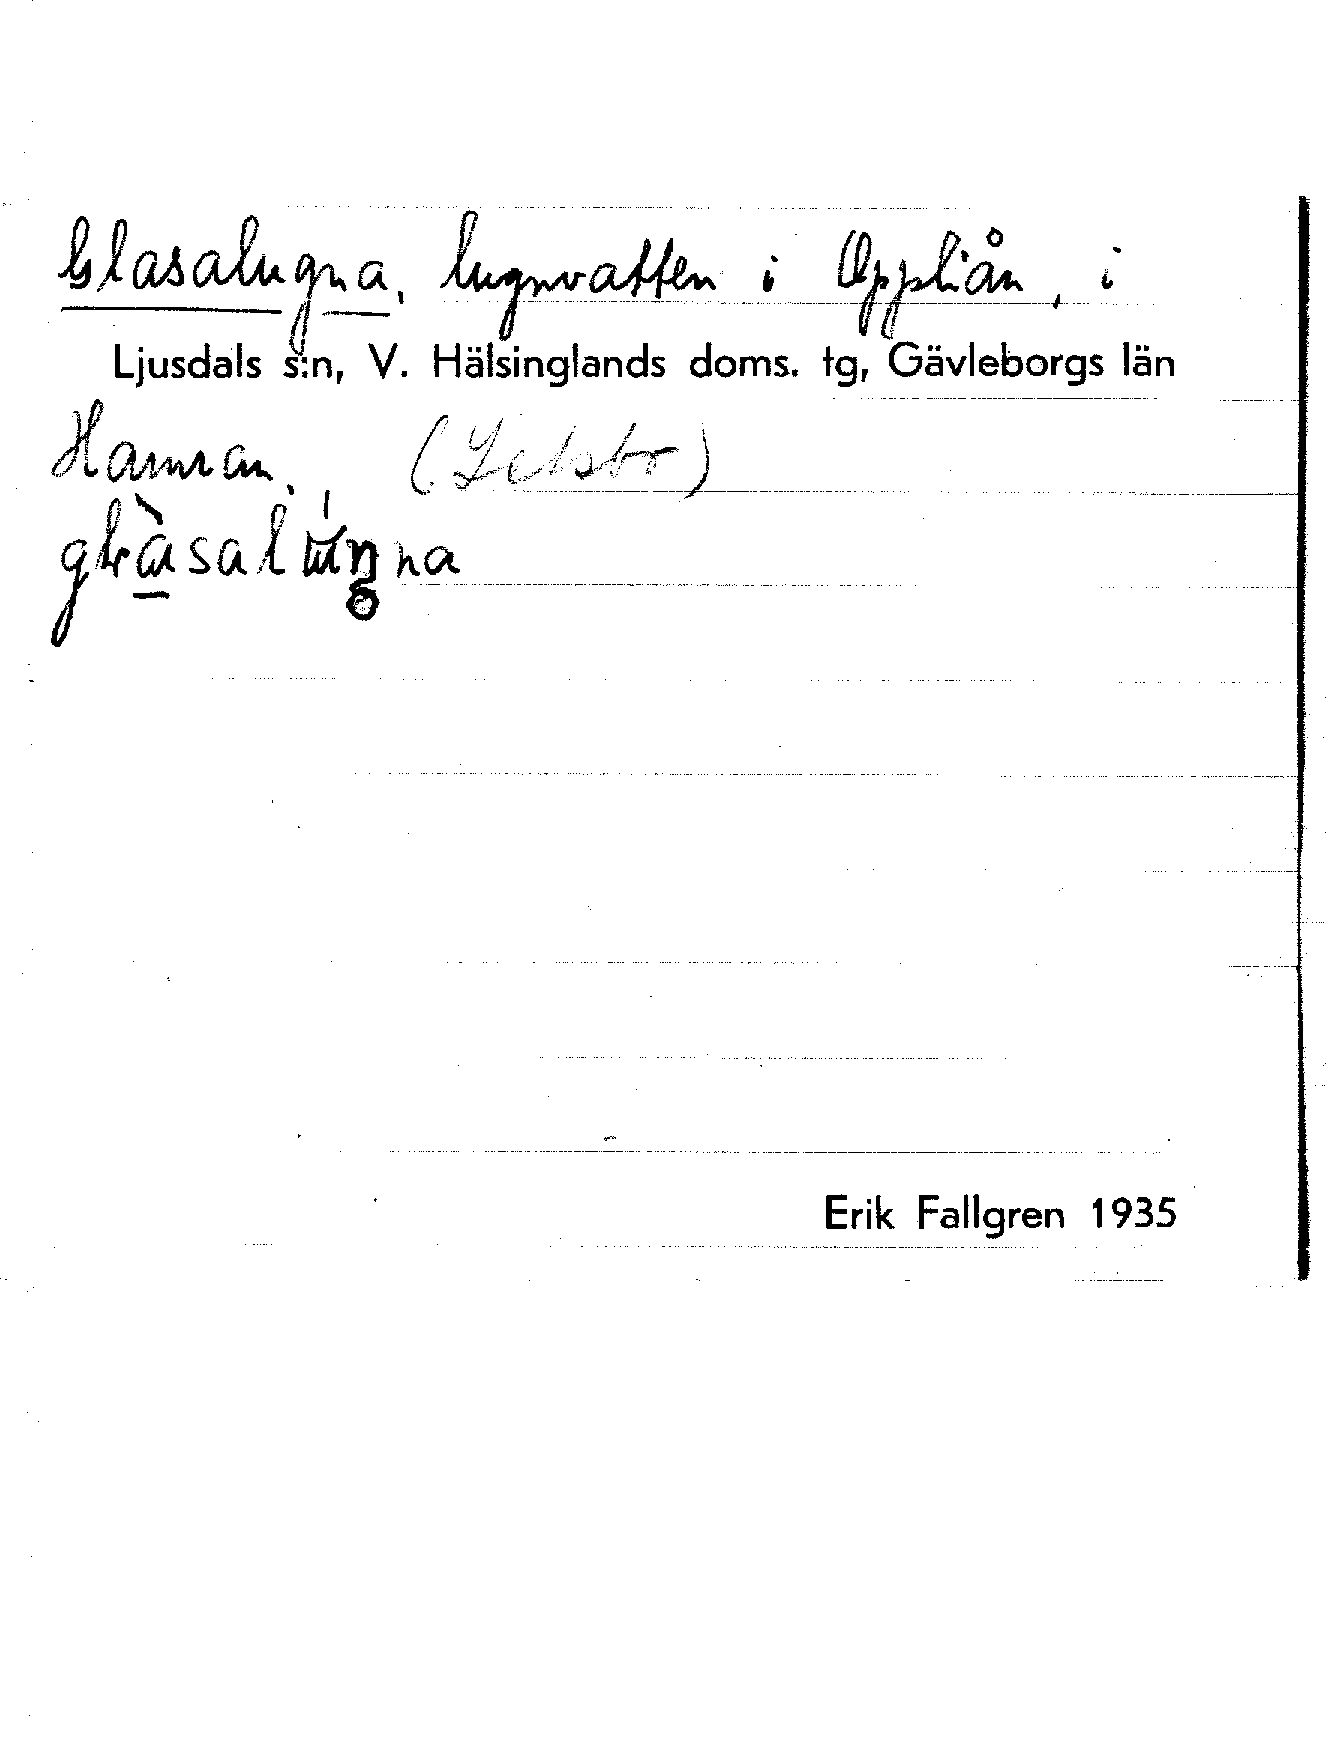 Glasalugna, lugnvatten i Öppliån, i
Ljusdals s:n, V. Hälsinglands doms. tg, Gävleborgs län
Hamran. (Letsbo)
Erik Fallgren 1935